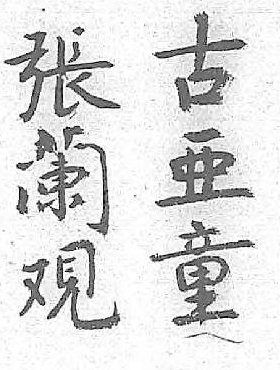 古亜童
張蘭观